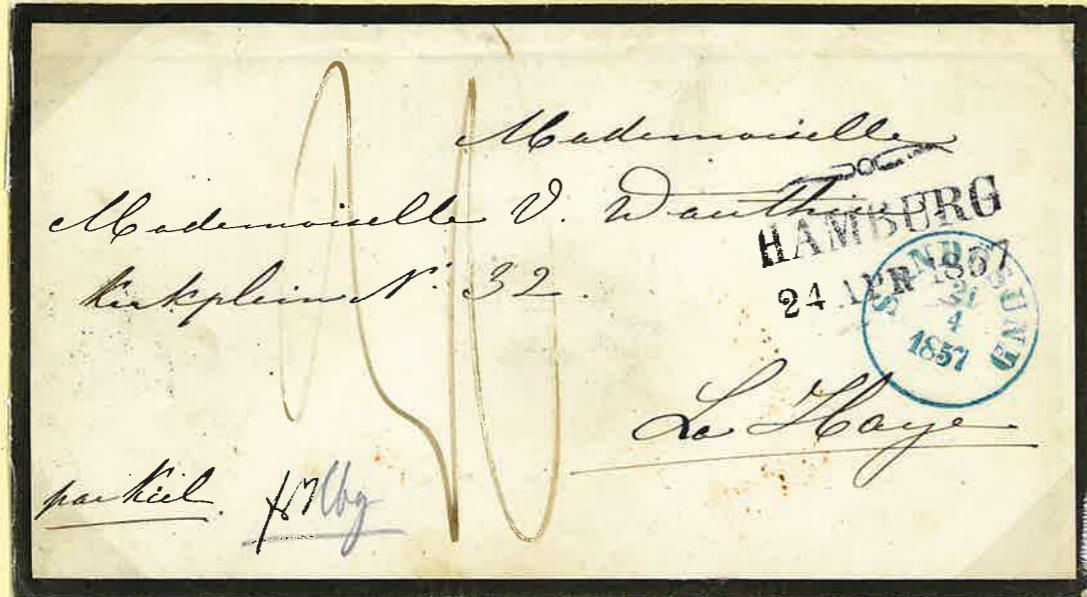 Mademoiselle
Mademoiselle V. Wauthier
Kerkplein N° 32.
HAMBURG
24 APR 1857
SANDØSUND
21
4
1857
La Haye
par Kiel.